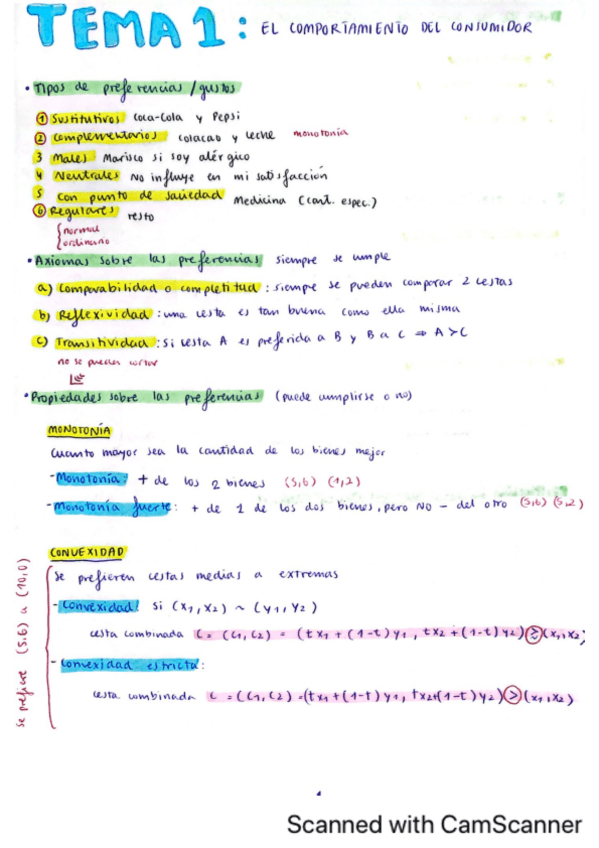 TEMA 1: EL COMPORTAMIENTO DEL CONSUMIDOR
• Tipos de preferencias / gustos
① Sustitutivos Coca-Cola y Pepsi
② Complementarios colacao y leche monotonía
3 Males Marisco si soy alérgico
4 Neutrales No influye en mi satisfacción
5 Con punto de saciedad Medicina (cant. espec.)
⑥ Regulares resto
{ normal
ordinario
• Axiomas sobre las preferencias siempre se cumple
a) Comparabilidad o completitud: siempre se pueden comparar 2 cestas
b) Reflexividad: una cesta es tan buena como ella misma
c) Transitividad: si cesta A es preferida a B y B a C ⇒ A > C
no se pueden cortar
• Propiedades sobre las preferencias (puede cumplirse o no)
MONOTONÍA
Cuanto mayor sea la cantidad de los bienes mejor
- Monotonía: + de los 2 bienes (5,6) (1,2)
- Monotonía fuerte: + de 1 de los dos bienes, pero NO - del otro (5,6) (5,2)
CONVEXIDAD
se prefiere (5,6) a (10,0)
Se prefieren cestas medias a extremas
- Convexidad: si (x1, x2) ~ (y1, y2)
cesta combinada C = (C1, C2) = (tx1 + (1-t) y1, tx2 + (1-t) y2) ≥ (x1, x2)
- Convexidad estricta:
cesta combinada C = (C1, C2) = (tx1 + (1-t) y1, tx2 + (1-t) y2) > (x1, x2)
Scanned with CamScanner